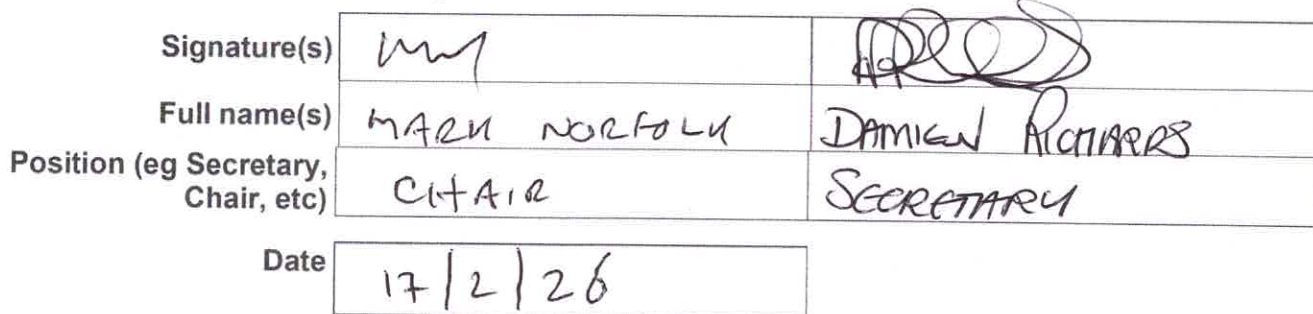 Signature(s)
Full name(s) MARK NORFOLK DAMIEN RICHARDS
Position (eg Secretary,
Chair, etc) CHAIR SECRETARY
Date 17/2/26